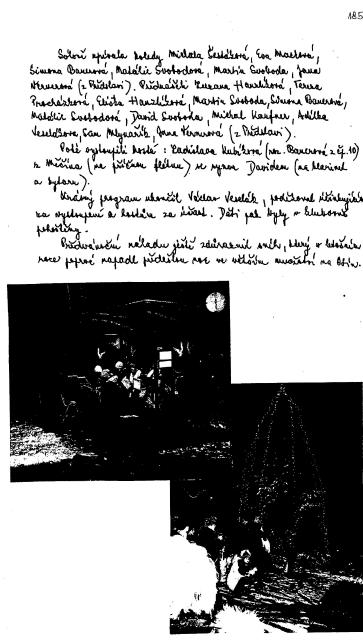 185
Sólově zpívala koledy Michala Šeslážová, Eva Macková,
Simona Baurová, Natálie Svobodová, Martin Svoboda, Jana
Vernerová (z Předslavi). Přednášeli Zuzana Hanzlíková, Tereza
Procházková, Eliška Hanzlíková, Martin Svoboda, Simona Baurová,
Natálie Svobodová, David Svoboda, Michal Kaufner, Adélka
Veselážová, Sam Mlynařík, Anna Vernerová (z Předslavi).
Poté vystoupili hosté: Ladislava Kubíková (roz. Baurová z čp. 10)
z Mičína (na příčnou flétnu) se synem Davidem (na klarinet
a kytaru).
Krásný program ukončil Václav Veselák, poděkoval účinkujícím
za vystoupení a hostům za účast. Děti pak byly v klubovně
pohoštěny.
Předvánoční náladu ještě zdůraznil sníh, který v letošním
roce poprvé napadl předešlou noc ve větším množství na